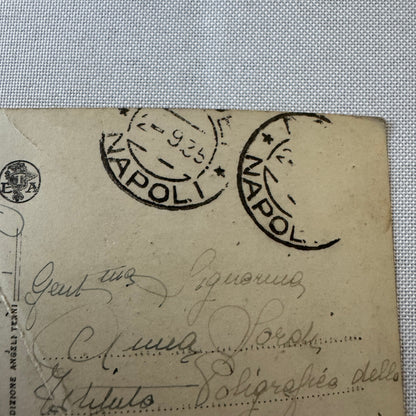 2-9.35
NAPOLI
2-
NAPOLI
ETA
DIZIONE ANGELI TERNI
Gent.ma Signorina
Anna
Istituto Poligrafico dello